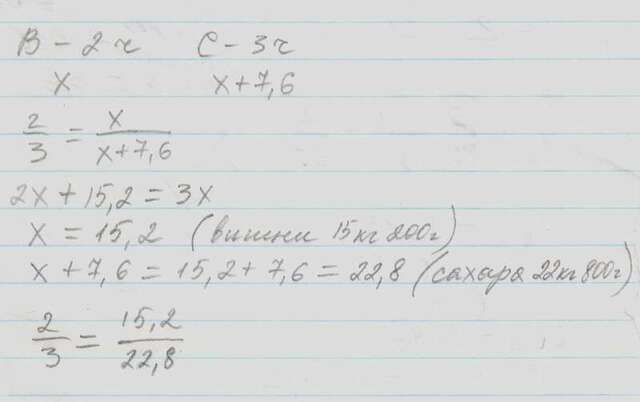 В – 2 ч С – 3 ч
x x + 7,6
2/3 = x/(x + 7,6)
2x + 15,2 = 3x
x = 15,2 (вишни 15кг 200г)
x + 7,6 = 15,2 + 7,6 = 22,8 (сахара 22кг 800г)
2/3 = 15,2/22,8